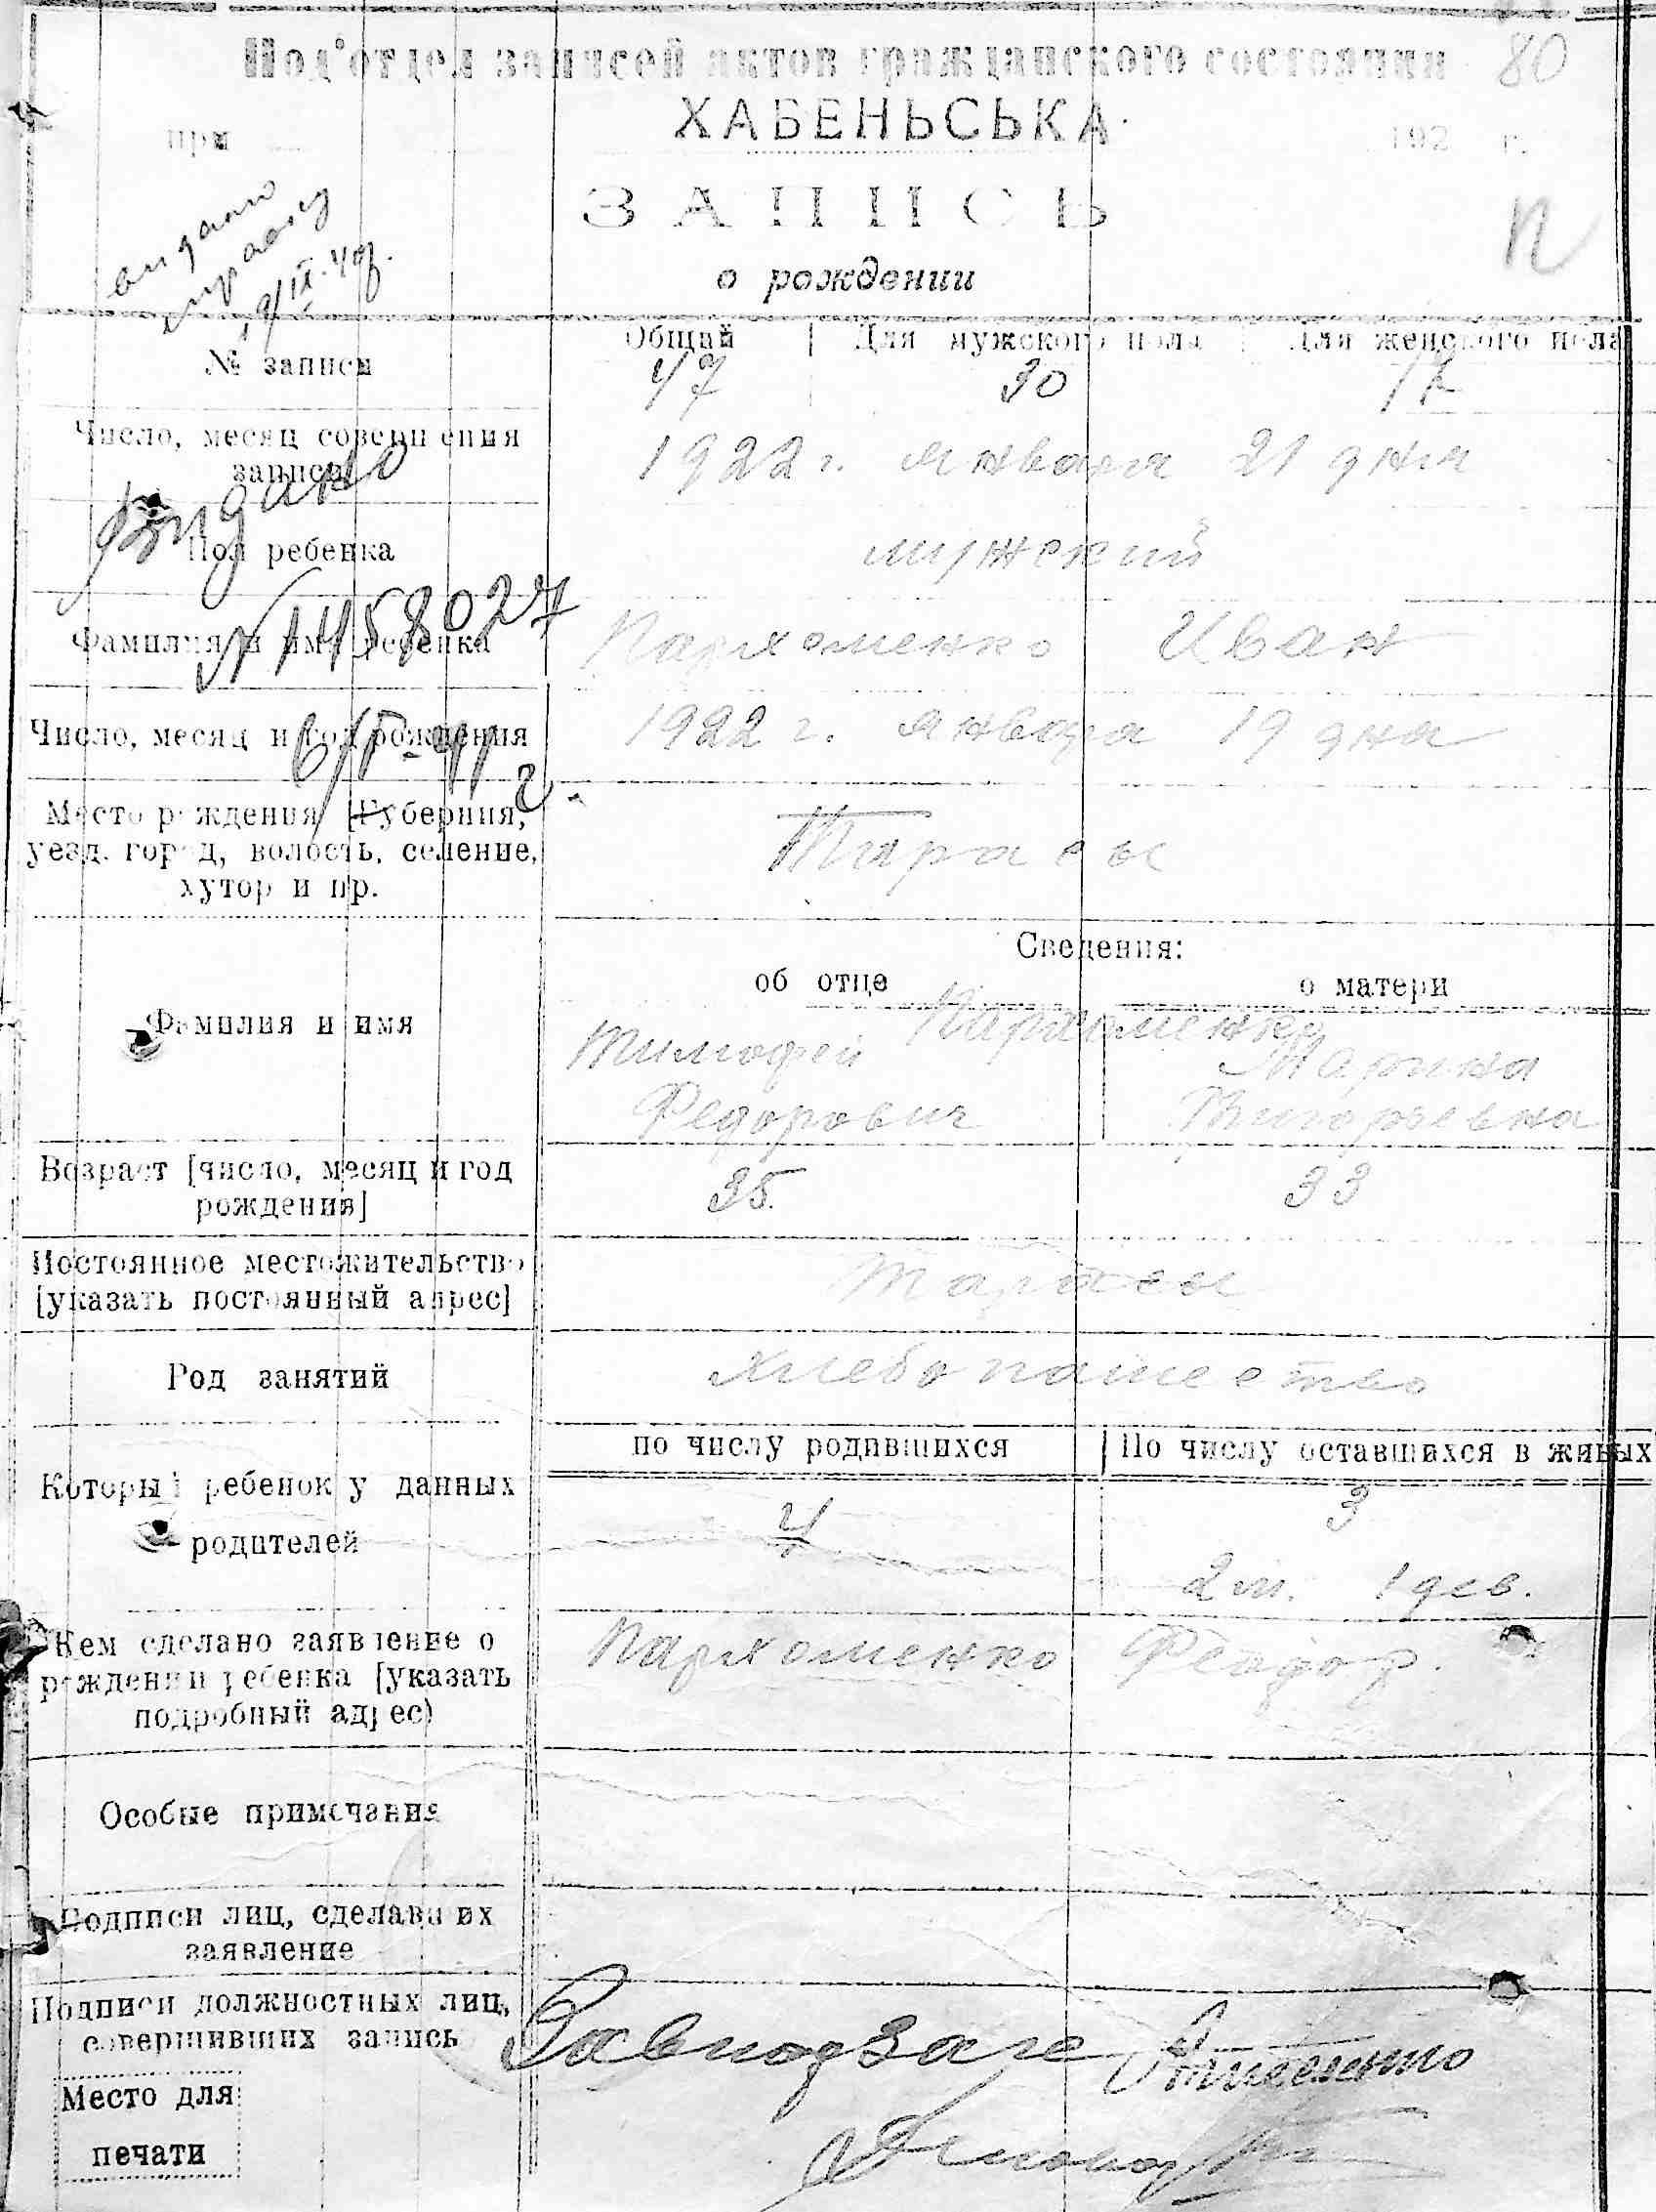 Под'отдел записей актов гражданского состояния 80
ХАБЕНЬСЬКА
при 192 г.
ЗАПИСЬ
о рождении
п
видано
Общий | Для мужского пола | Для женского пола
№ записи 47 30 17
Число, месяц совершения записи 1922 г. января 21 дня
Видано
Пол ребенка мужский
№ 1458027
Фамилия и имя ребенка Пархоменко Иван
Число, месяц и год рождения 1922 г. января 19 дна
Место рождения [Губерния, Тарасы
уезд, город, волость, селение,
хутор и пр.
Сведения:
об отце о матери
Фамилия и имя Пархоменко
Тимофей Марина
Федорович Григорьевна
Возраст [число, месяц и год 35. 33
рождения]
Постоянное местожительство Тарасы
[указать постоянный адрес]
Род занятий хлебопашество
по числу родившихся | По числу оставшихся в живых
Который ребенок у данных 4 3
родителей
2 м. 1 дев.
Кем сделано заявление о Пархоменко Феодор.
рождении ребенка [указать
подробный адрес)
Особые примечания
Подписи лиц, сделавших
заявление
Подписи должностных лиц, Завподзаге
совершивших запись
Место для
печати